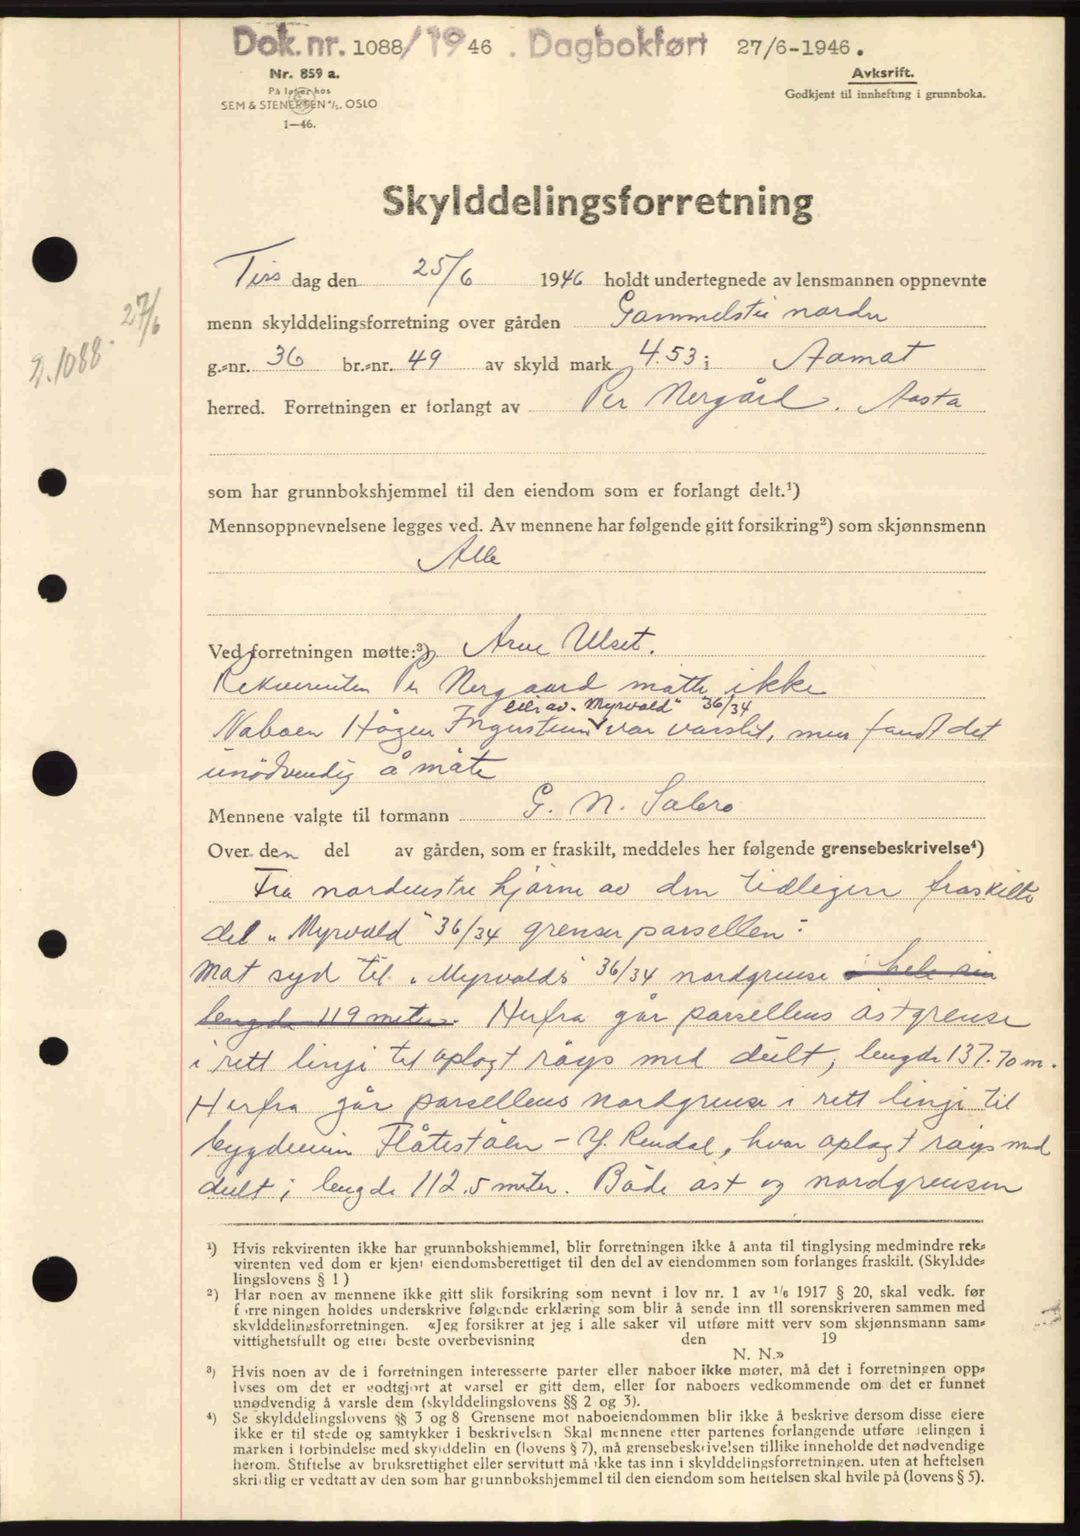 Dok.nr. 1088/1946. Dagbokført 27/6-1946.
Nr. 859 a.
På lager hos
SEM & STENERSEN A/S. OSLO
1—46.
Avksrift.
Godkjent til innhefting i grunnboka.
27/6
D.1088
Skylddelingsforretning
Tirs dag den 25/6 1946 holdt undertegnede av lensmannen oppnevnte
menn skylddelingsforretning over gården Gammelstu nordre
g.-nr. 36 br.-nr. 49 av skyld mark 4.53 i Aamot
herred. Forretningen er forlangt av Per Nergård. Aasta
som har grunnbokshjemmel til den eiendom som er forlangt delt.¹)
Mennsoppnevnelsene legges ved. Av mennene har følgende gitt forsikring²) som skjønnsmenn
Alle
Ved forretningen møtte:³) Arve Ulset.
Rekvirenten Per Nergaard møtte ikke
eier av „Myrvold" 36/34
Naboen Hågen Ingustuen var varslet, men fandt det
unödvendig å møte
Mennene valgte til formann G. N. Sæbero
Over den del av gården, som er fraskilt, meddeles her følgende grensebeskrivelse⁴)
Fra nordøstre hjörne av den tidligere fraskilte
del „Myrvold" 36/34 grenser parsellen:
Mot syd til „Myrvolds" 36/34 nordgrense i hele sin
lengde 119 meter. Herfra går parsellens östgrense
i rett linje til oplagt röys med delt, lengde 137.70 m.
Herfra går parsellens nordgrense i rett linje til
bygdeveien Flåtestöen - Y. Rendal, hvor oplagt röys med
delt; lengde 112.5 meter. Både öst og nordgrensen
¹) Hvis rekvirenten ikke har grunnbokshjemmel, blir forretningen ikke å anta til tinglysing medmindre rek-
virenten ved dom er kjent eiendomsberettiget til den del av eiendommen som forlanges fraskilt. (Skyldde-
lingslovens § 1)
²) Har noen av mennene ikke gitt slik forsikring som nevnt i lov nr. 1 av 1/6 1917 § 20, skal vedk. før
forretningen holdes underskrive følgende erklæring som blir å sende inn til sorenskriveren sammen med
skylddelingsforretningen. «Jeg forsikrer at jeg i alle saker vil utføre mitt verv som skjønnsmann sam-
vittighetsfullt og etter beste overbevisning den 19
N. N.»
³) Hvis noen av de i forretningen interesserte parter eller naboer ikke møter, må det i forretningen opp-
lyses om det er godtgjort at varsel er gitt dem, eller for naboers vedkommende om det er funnet
unødvendig å varsle dem (skylddelingslovens §§ 2 og 3).
⁴) Se skylddelingslovens §§ 3 og 8 Grensene mot naboeiendommen blir ikke å beskrive dersom disse eiere
ikke er til stede og samtykker i beskrivelsen Skal mennene etter partenes forlangende utføre delingen i
marken i forbindelse med skylddelingen (lovens § 7), må grensebeskrivelsen tillike inneholde det nødvendige
herom. Stiftelse av bruksrettighet eller servitutt må ikke tas inn i skylddelingsforretningen. uten at heftelsen
skriftlig er vedtatt av den som har grunnbokshjemmel til den eiendom som heftelsen skal hvile på (lovens § 5).